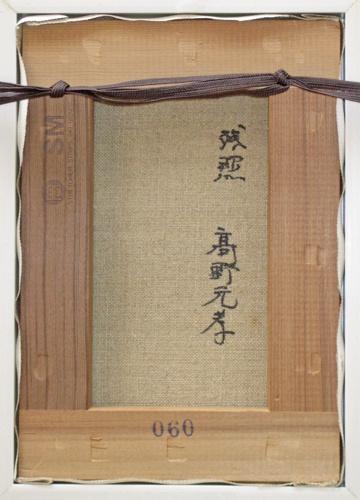 残照
髙野元孝
SM
060